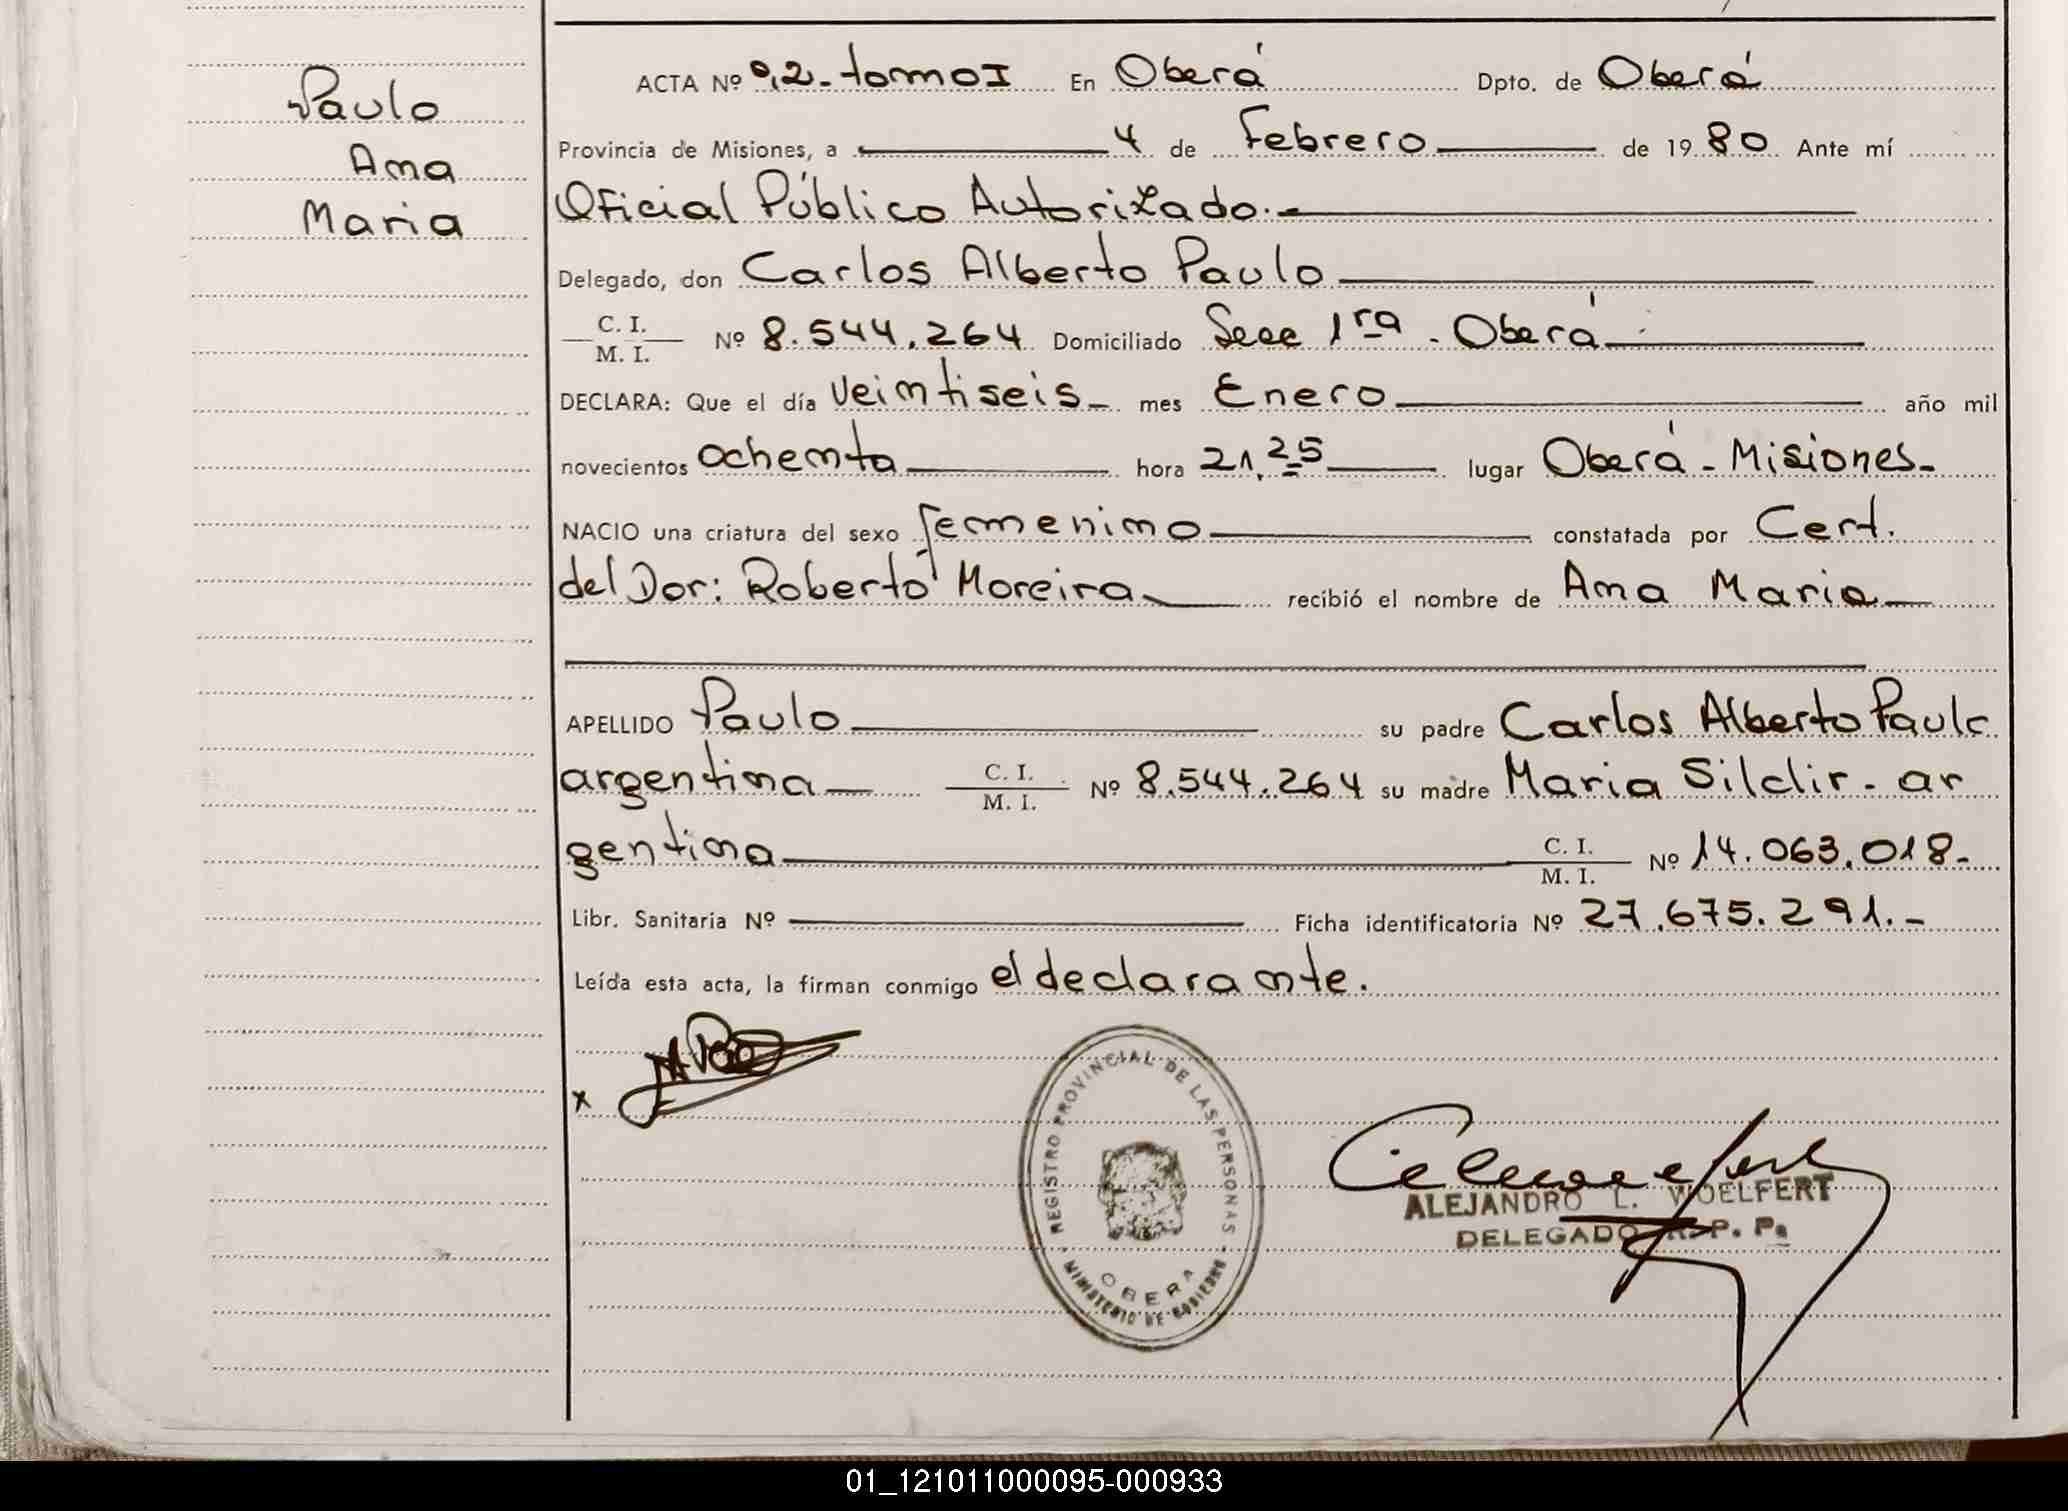 Paulo
Ana
Maria
ACTA Nº 92 - tomo I En Oberá Dpto. de Oberá
Provincia de Misiones, a 4 de Febrero de 1980 Ante mí
Oficial Público Autorizado.-
Delegado, don Carlos Alberto Paulo
C. I.
M. I. Nº 8.544.264 Domiciliado Secc 1ra - Oberá
DECLARA: Que el día veintiseis - mes Enero año mil
novecientos ochenta hora 21,25 lugar Oberá - Misiones -
NACIO una criatura del sexo femenino constatada por Cert.
del Dor: Roberto Moreira recibió el nombre de Ana Maria
APELLIDO Paulo su padre Carlos Alberto Paulo
argentina C. I.
M. I. Nº 8.544.264 su madre Maria Silclir - ar
gentina C. I.
M. I. Nº 14.063.018 -
Libr. Sanitaria Nº Ficha identificatoria Nº 27.675.291.-
Leída esta acta, la firman conmigo el declarante.
x
REGISTRO PROVINCIAL DE LAS PERSONAS
OBERA
MINISTERIO DE GOBIERNO
ALEJANDRO L. WOELFERT
DELEGADO R. P. P.
01_121011000095-000933